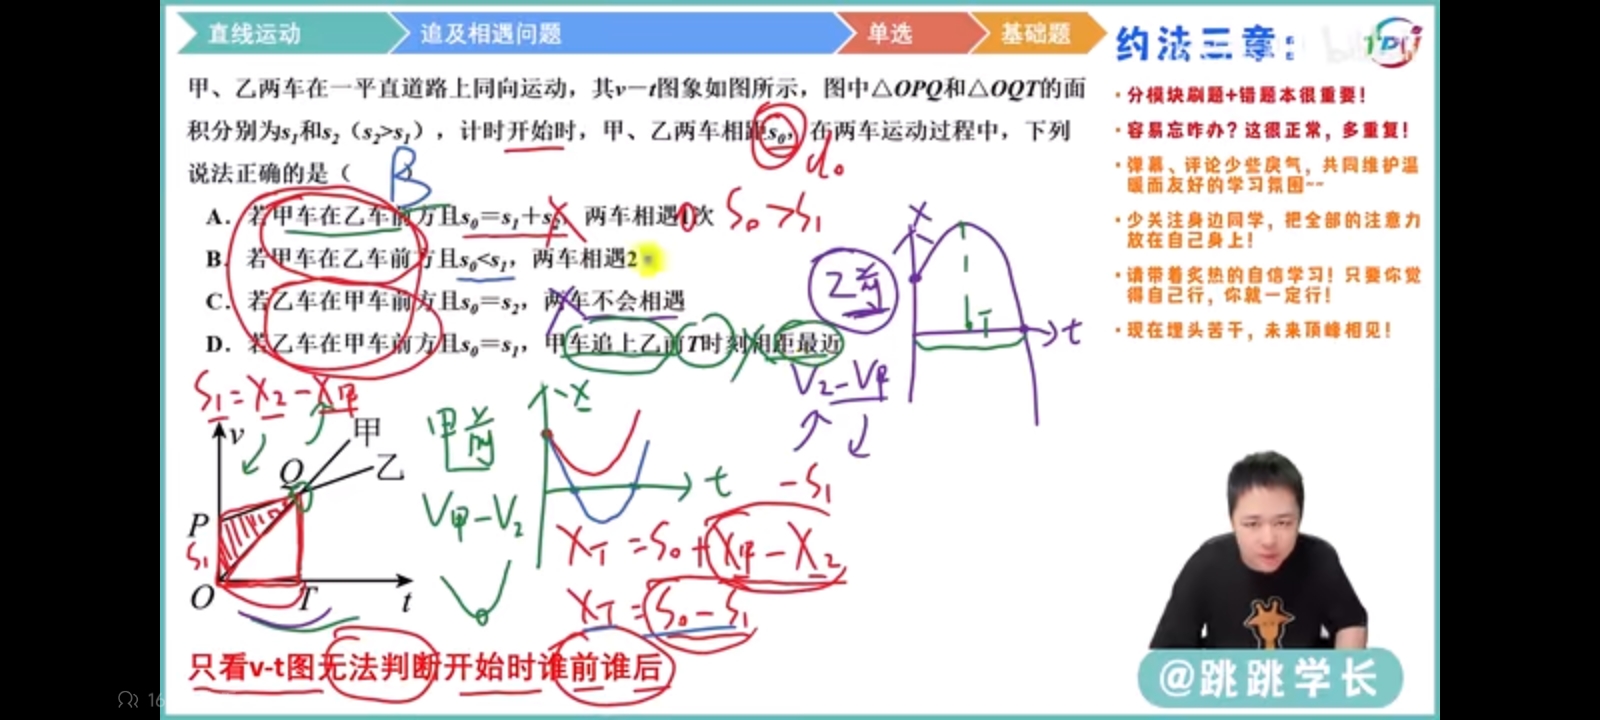 直线运动
追及相遇问题
单选
基础题
约法三章：
甲、乙两车在一平直道路上同向运动，其v－t图象如图所示，图中△OPQ和△OQT的面
积分别为s₁和s₂（s₂>s₁），计时开始时，甲、乙两车相距s₀，在两车运动过程中，下列
d₀
说法正确的是（　B　）
A．若甲车在乙车前方且s₀＝s₁＋s₂，两车相遇0次
S₀＞S₁
B．若甲车在乙车前方且s₀<s₁，两车相遇2
C．若乙车在甲车前方且s₀＝s₂，两车不会相遇
D．若乙车在甲车前方且s₀＝s₁，甲车追上乙前T时刻相距最近
· 分模块刷题+错题本很重要！
· 容易忘咋办？这很正常，多重复！
· 弹幕、评论少些戾气，共同维护温
暖而友好的学习氛围~~
· 少关注身边同学，把全部的注意力
放在自己身上！
· 请带着炙热的自信学习！只要你觉
得自己行，你就一定行！
· 现在埋头苦干，未来顶峰相见！
X
乙前
T
t
V乙－V甲
S₁＝X乙－X甲
v
甲
乙
Q
P
S₁
O
T
t
甲前
V甲－V乙
X
t
－S₁
X_T＝S₀＋X甲－X乙
X_T＝S₀－S₁
只看v-t图无法判断开始时谁前谁后
@跳跳学长
16